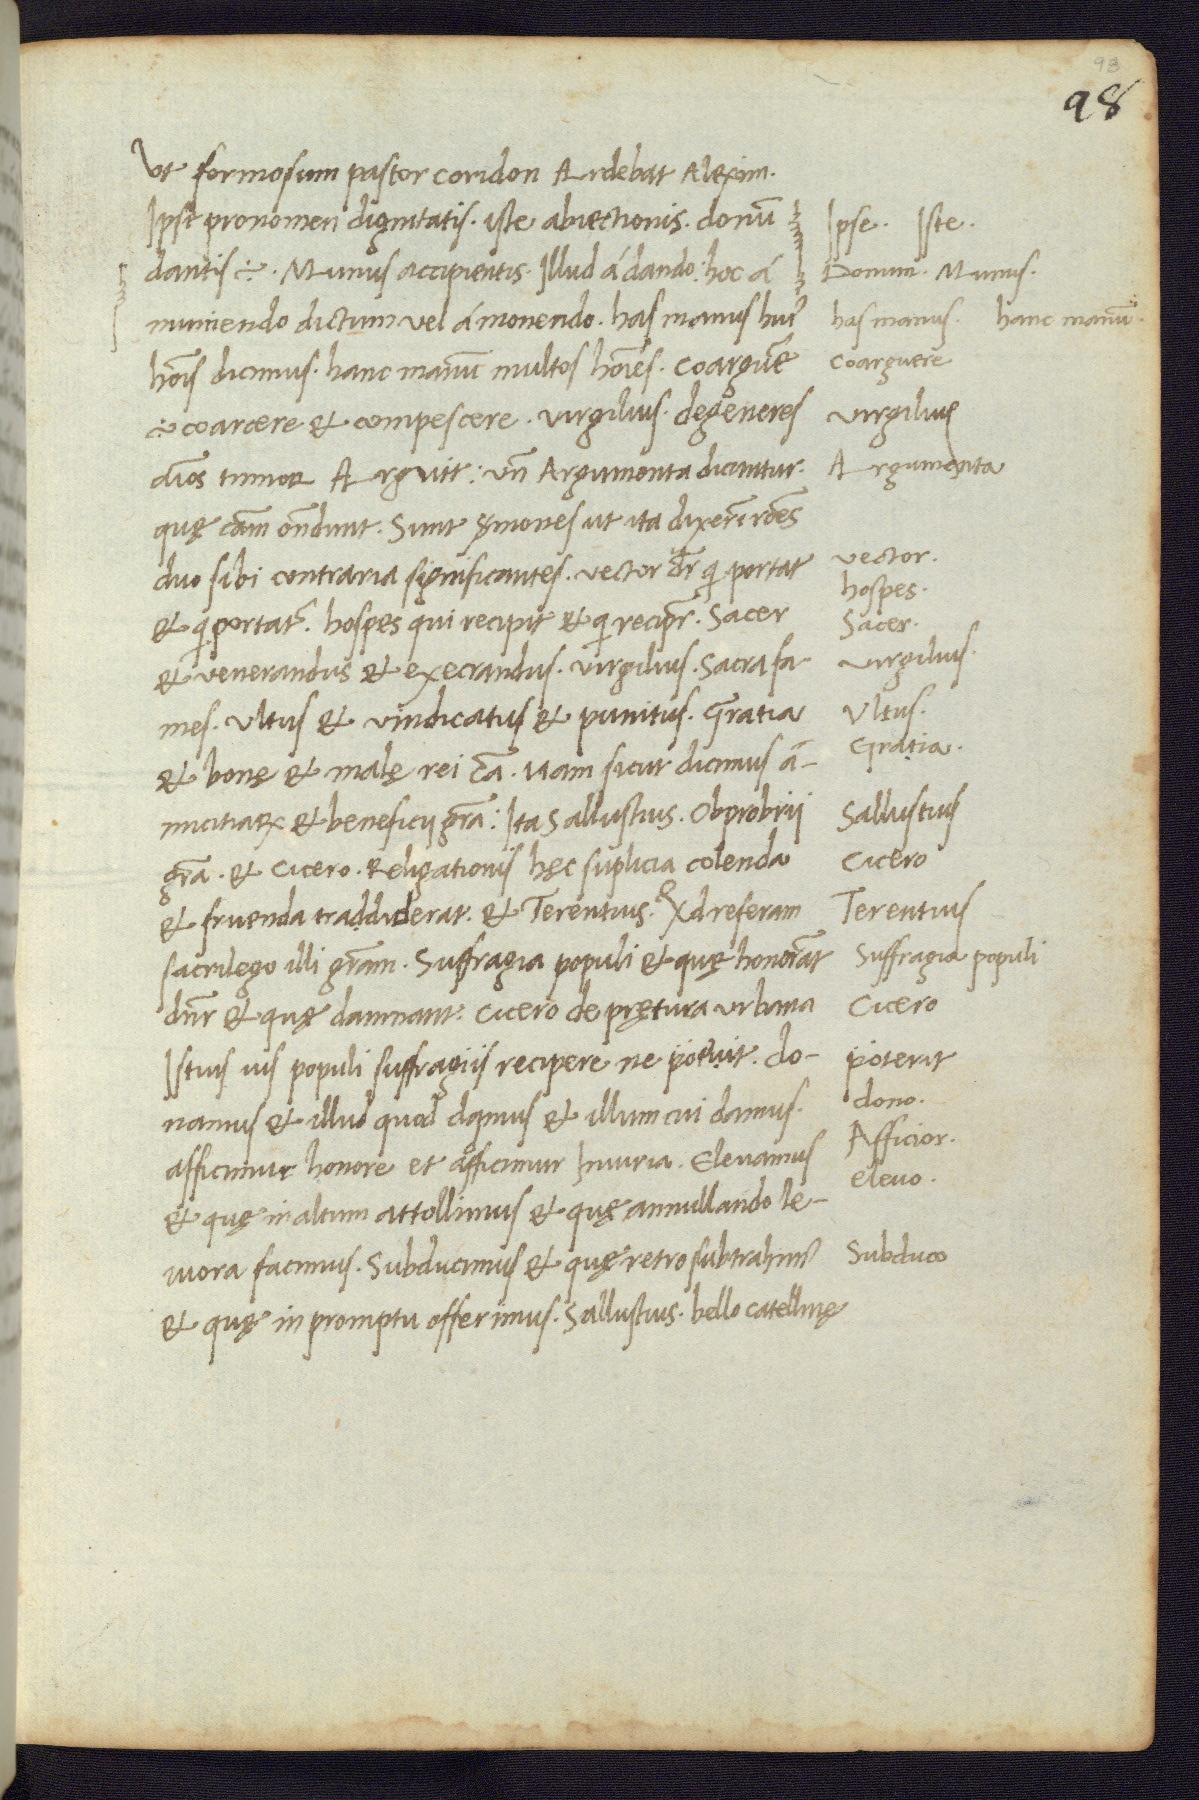 93
98
Ut formosum pastor coridon Ardebat Alexim.
Ipse pronomen dignitatis. iste abiectionis. donū
dantis ÷. Munus accipientis. Illud á dando: hoc á
muniendo dictum vel á monendo. has manus huī
hoīs dicimus. hanc manū multos hoīes. Coarguē
÷ coarcere & compescere. Virgilius. degeneres
aīos timor Arguit: vñ Argumenta dicuntur.
quę cām oñdunt. Sunt ꝫmones ut ita dixerī
duo sibi contraria significantes. vector dr̄ qͥ portat
& qͥ portat᷑. hospes qui recipit & qͥ recipr̄. Sacer
& venerandus & execrandus. Virgilius. Sacra fa-
mes. Ultus & vindicatus & punitus. Gratia
& bonę & malę rei cā. Nam sicut dicimus a-
micitiaꝝ & beneficij grā: Ita Sallustius. Obprobrij
grā. & Cicero. Religationis hęc suplicia colenda
& fruenda traddiderat. & Terentius. Qd referam
sacrilego illi grām. Suffragia populi & quę honorāt
dnr̄ & quę damnant. Cicero de prętura urbana
Istius uis populi suffragijs recipere ne potuit. do-
namus & illud quod damus & illum cui damus.
afficimur honore et afficimur Iniuria. Eleuamus
& quę in altum attollimus & quę annullando le-
uiora facimus. Subducimus & quę retro subtrahimꝰ
& quę in promptu offerimus. Sallustius. bello catellinę
Ipse. Iste.
Donum. Munus.
has manus. hanc manū.
Coarguere
Virgilius
Argumenta
vector.
hospes.
Sacer.
Virgilius.
Ultus.
Gratia.
Sallustius
Cicero
Terentius
Suffragia populi
Cicero
poterit
dono.
Afficior.
eleuo.
Subduco